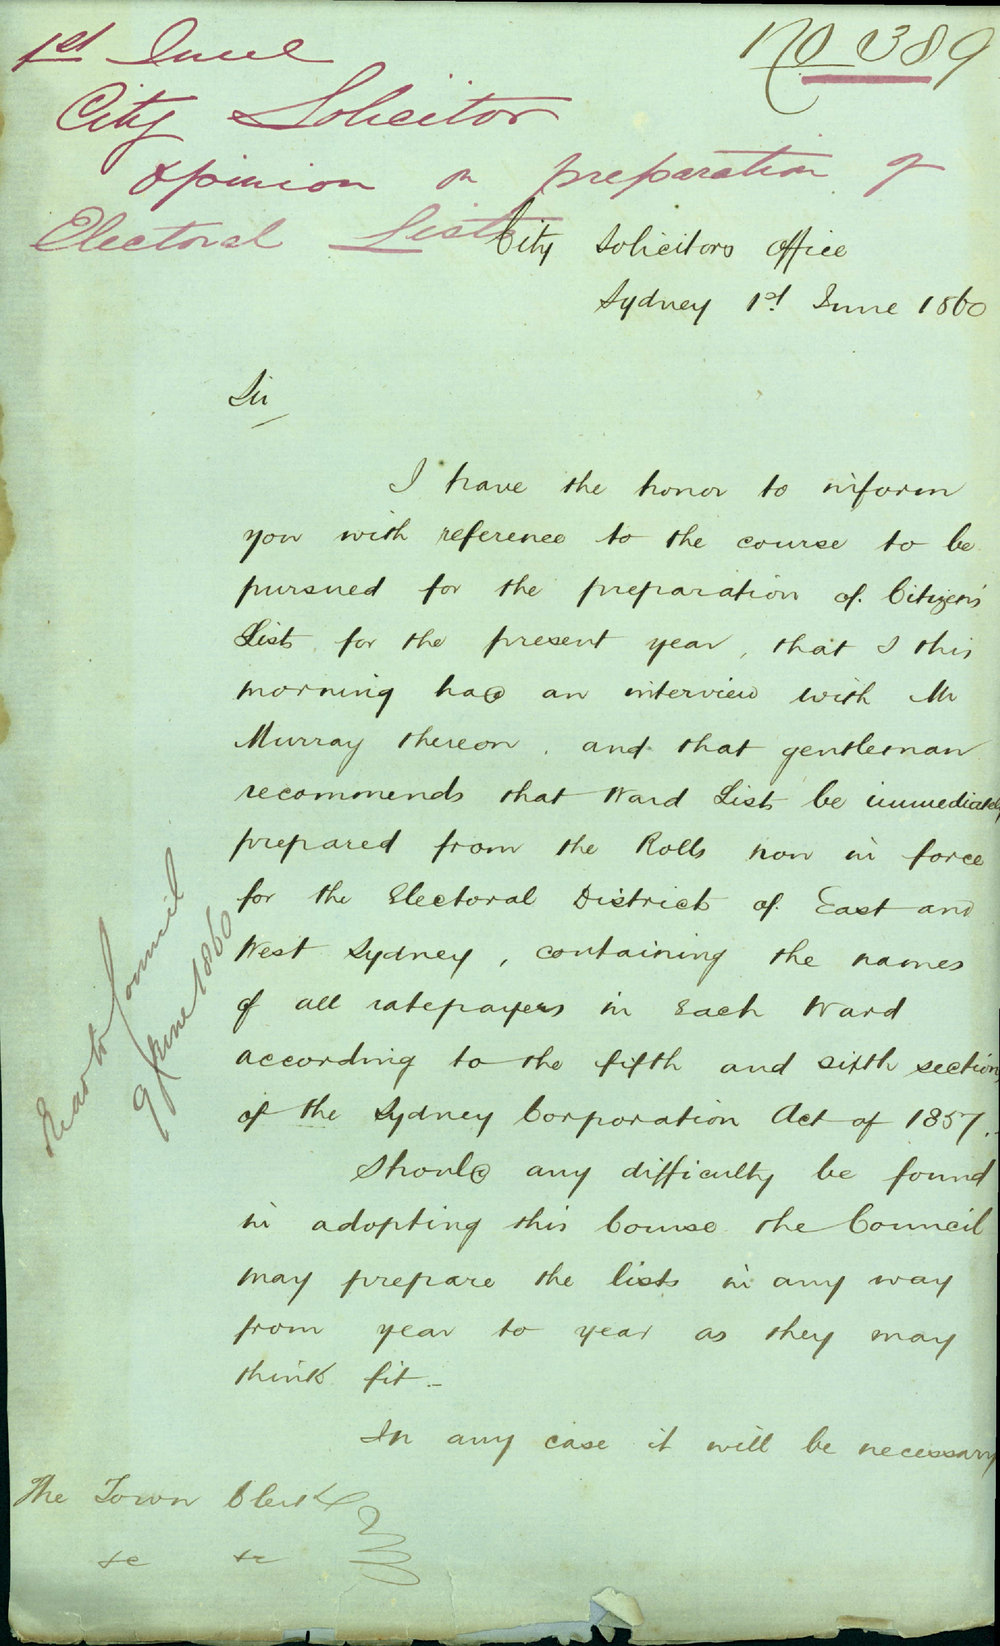 1st June
No 389
City Solicitor
Opinion on preparation of
Electoral Lists
City Solicitors Office
Sydney 1st June 1860
Sir
I have the honor to inform
you with reference to the course to be
pursued for the preparation of Citizens
Lists for the present year, that I this
morning had an interview with Mr
Murray thereon. and that gentleman
recommends that Ward Lists be immediately
prepared from the Rolls now in force
for the Electoral Districts of East and
West Sydney, containing the names
of all ratepayers in Each Ward
according to the fifth and sixth section
of the Sydney Corporation Act of 1857.
Should any difficulty be found
in adopting this Course the Council
may prepare the lists in any way
from year to year as they may
think fit_
In any case it will be necessary
The Town Clerk
&c &c
Read to Council
9 June 1860